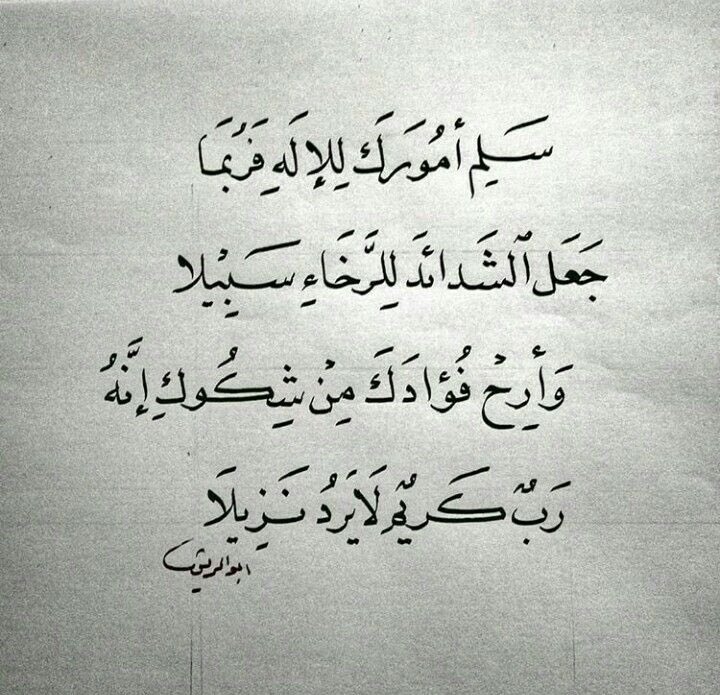 سَلِم أمُورَكَ لِلإلَهِ فَرُبَمَا
جَعَل ٱلشَدائدَ لِلرَّخَاءِ سَبِيْلا
وَأَرِحْ فُؤادَكَ مِنْ شِكُوكِ إنَّهُ
رَبٌ كَريْمٌ لَا يَرُدُ نَزِيلَا